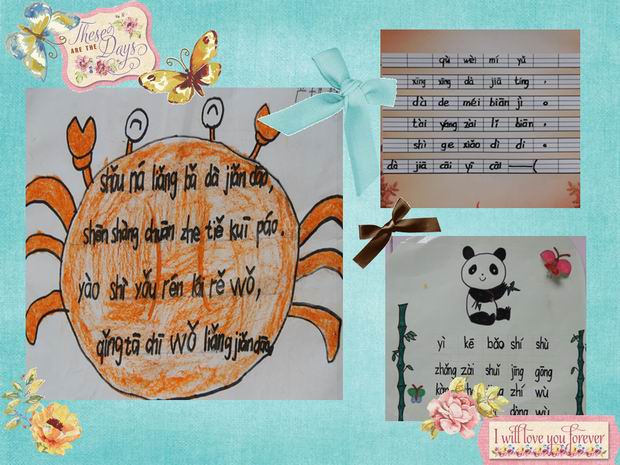 These
ARE THE
Days
shǒu ná liǎng bǎ dà jiǎn dāo,
shēn shàng chuān zhe tiě kuī páo.
yào shì yǒu rén lái rě wǒ,
qǐng tā chī wǒ liǎng jiǎn dāo.
qù wèi mí yǔ
xīng xīng dà jiā tíng ,
dà de méi biān jì 。
tài yáng zài lǐ biān ,
shì ge xiǎo dì di 。
dà jiā cāi yī cāi ——(
yì kē bǎo shí shù
zhǎng zài shuǐ jīng gōng
zhí wù
dòng wù
I will love you forever